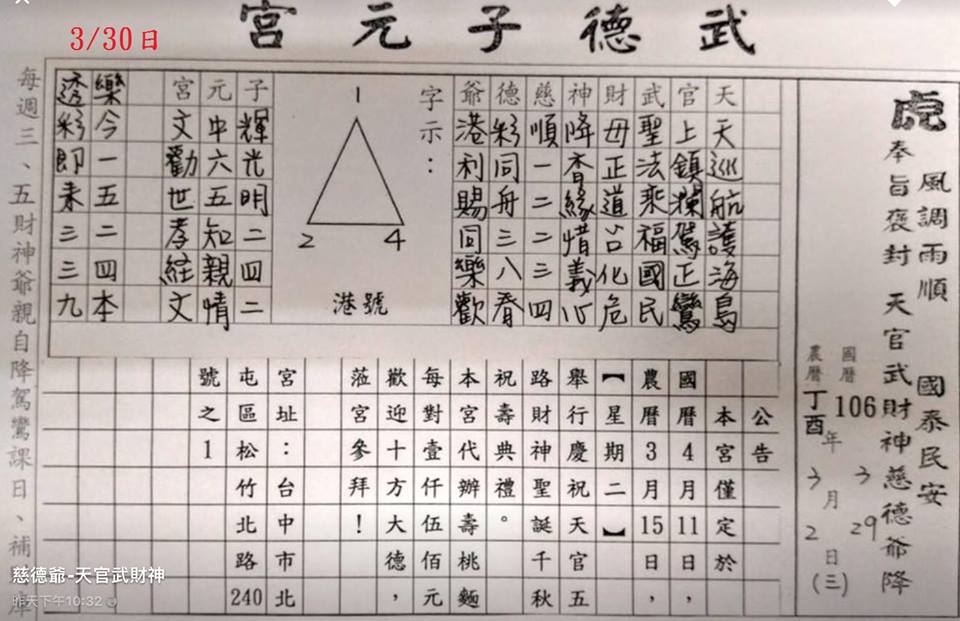 3/30日
武德子元宮
風調雨順 國泰民安
虎
奉旨褒封 天官武財神慈德爺降
國曆 106年3月29日(三)
農曆 丁酉年3月2日
天天巡航護海島
官上鎮瀾駕正鸞
武聖法乘福國民
財母正道公化危
神降香緣惜義心
慈順一二二三四
德彩同舟三八春
爺港利賜同樂歡
字示：
1
2 4
港號
子輝光明二四二
元中六五知親情
宮文勸世孝經文
樂今一五二四本
透彩即未三三九
公告
本宮僅定於
國曆4月11日，
農曆3月15日
【星期二】
舉行慶祝天官五
路財神聖誕千秋
祝壽典禮。
本宮代辦壽桃麵
每對壹仟伍佰元
歡迎十方大德，
蒞宮參拜！
宮址：台中市北
屯區松竹北路240
號之1
每週三、五財神爺親自降駕鸞課日、補庫
慈德爺-天官武財神
昨天下午10:32